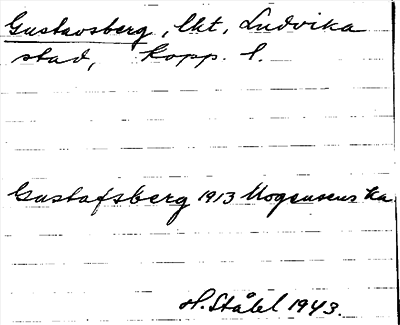 Gustavsberg, lht, Ludvika
stad, Kopp. l.
Gustafsberg 1913 Mogensens ka
H. Ståhl 1943.